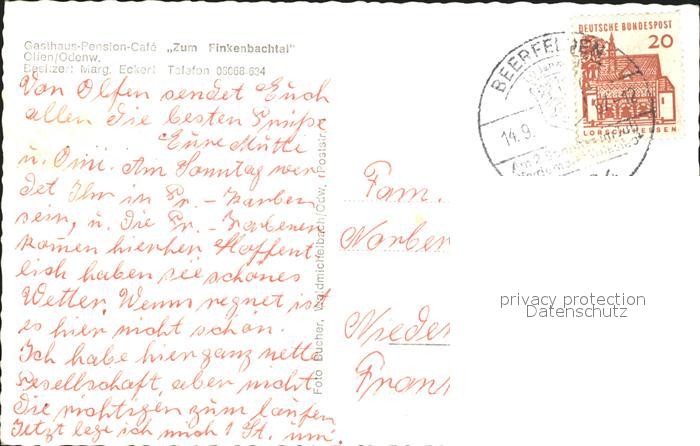 Gasthaus-Pension-Café „Zum Finkenbachtal"
Olfen/Odenw.
Besitzer: Marg. Eckert Telefon 06068-634
Von Olfen sendet Euch
allen die besten Grüße
Eure Mutti
u. Omi. Am Sonntag wer
det Ihr in Gr. - Karben
sein, u. die Gr. - Karbener
kamen hierher. Hoffent
lich haben sie schönes
Wetter. Wenn regnet ist
es hier nicht schön.
Ich habe hier ganz nette
Gesellschaft, aber nicht
die richtigen zum laufen
Jetzt lege ich mich 1 St. um.
Foto Bucher, Waldmichelbach/Odw. (Poststr.
DEUTSCHE BUNDESPOST
20
LORSCH/HESSEN
BEERFELDEN
14.9.
Fam.
Norber
Nieder
Fran
privacy protection
Datenschutz